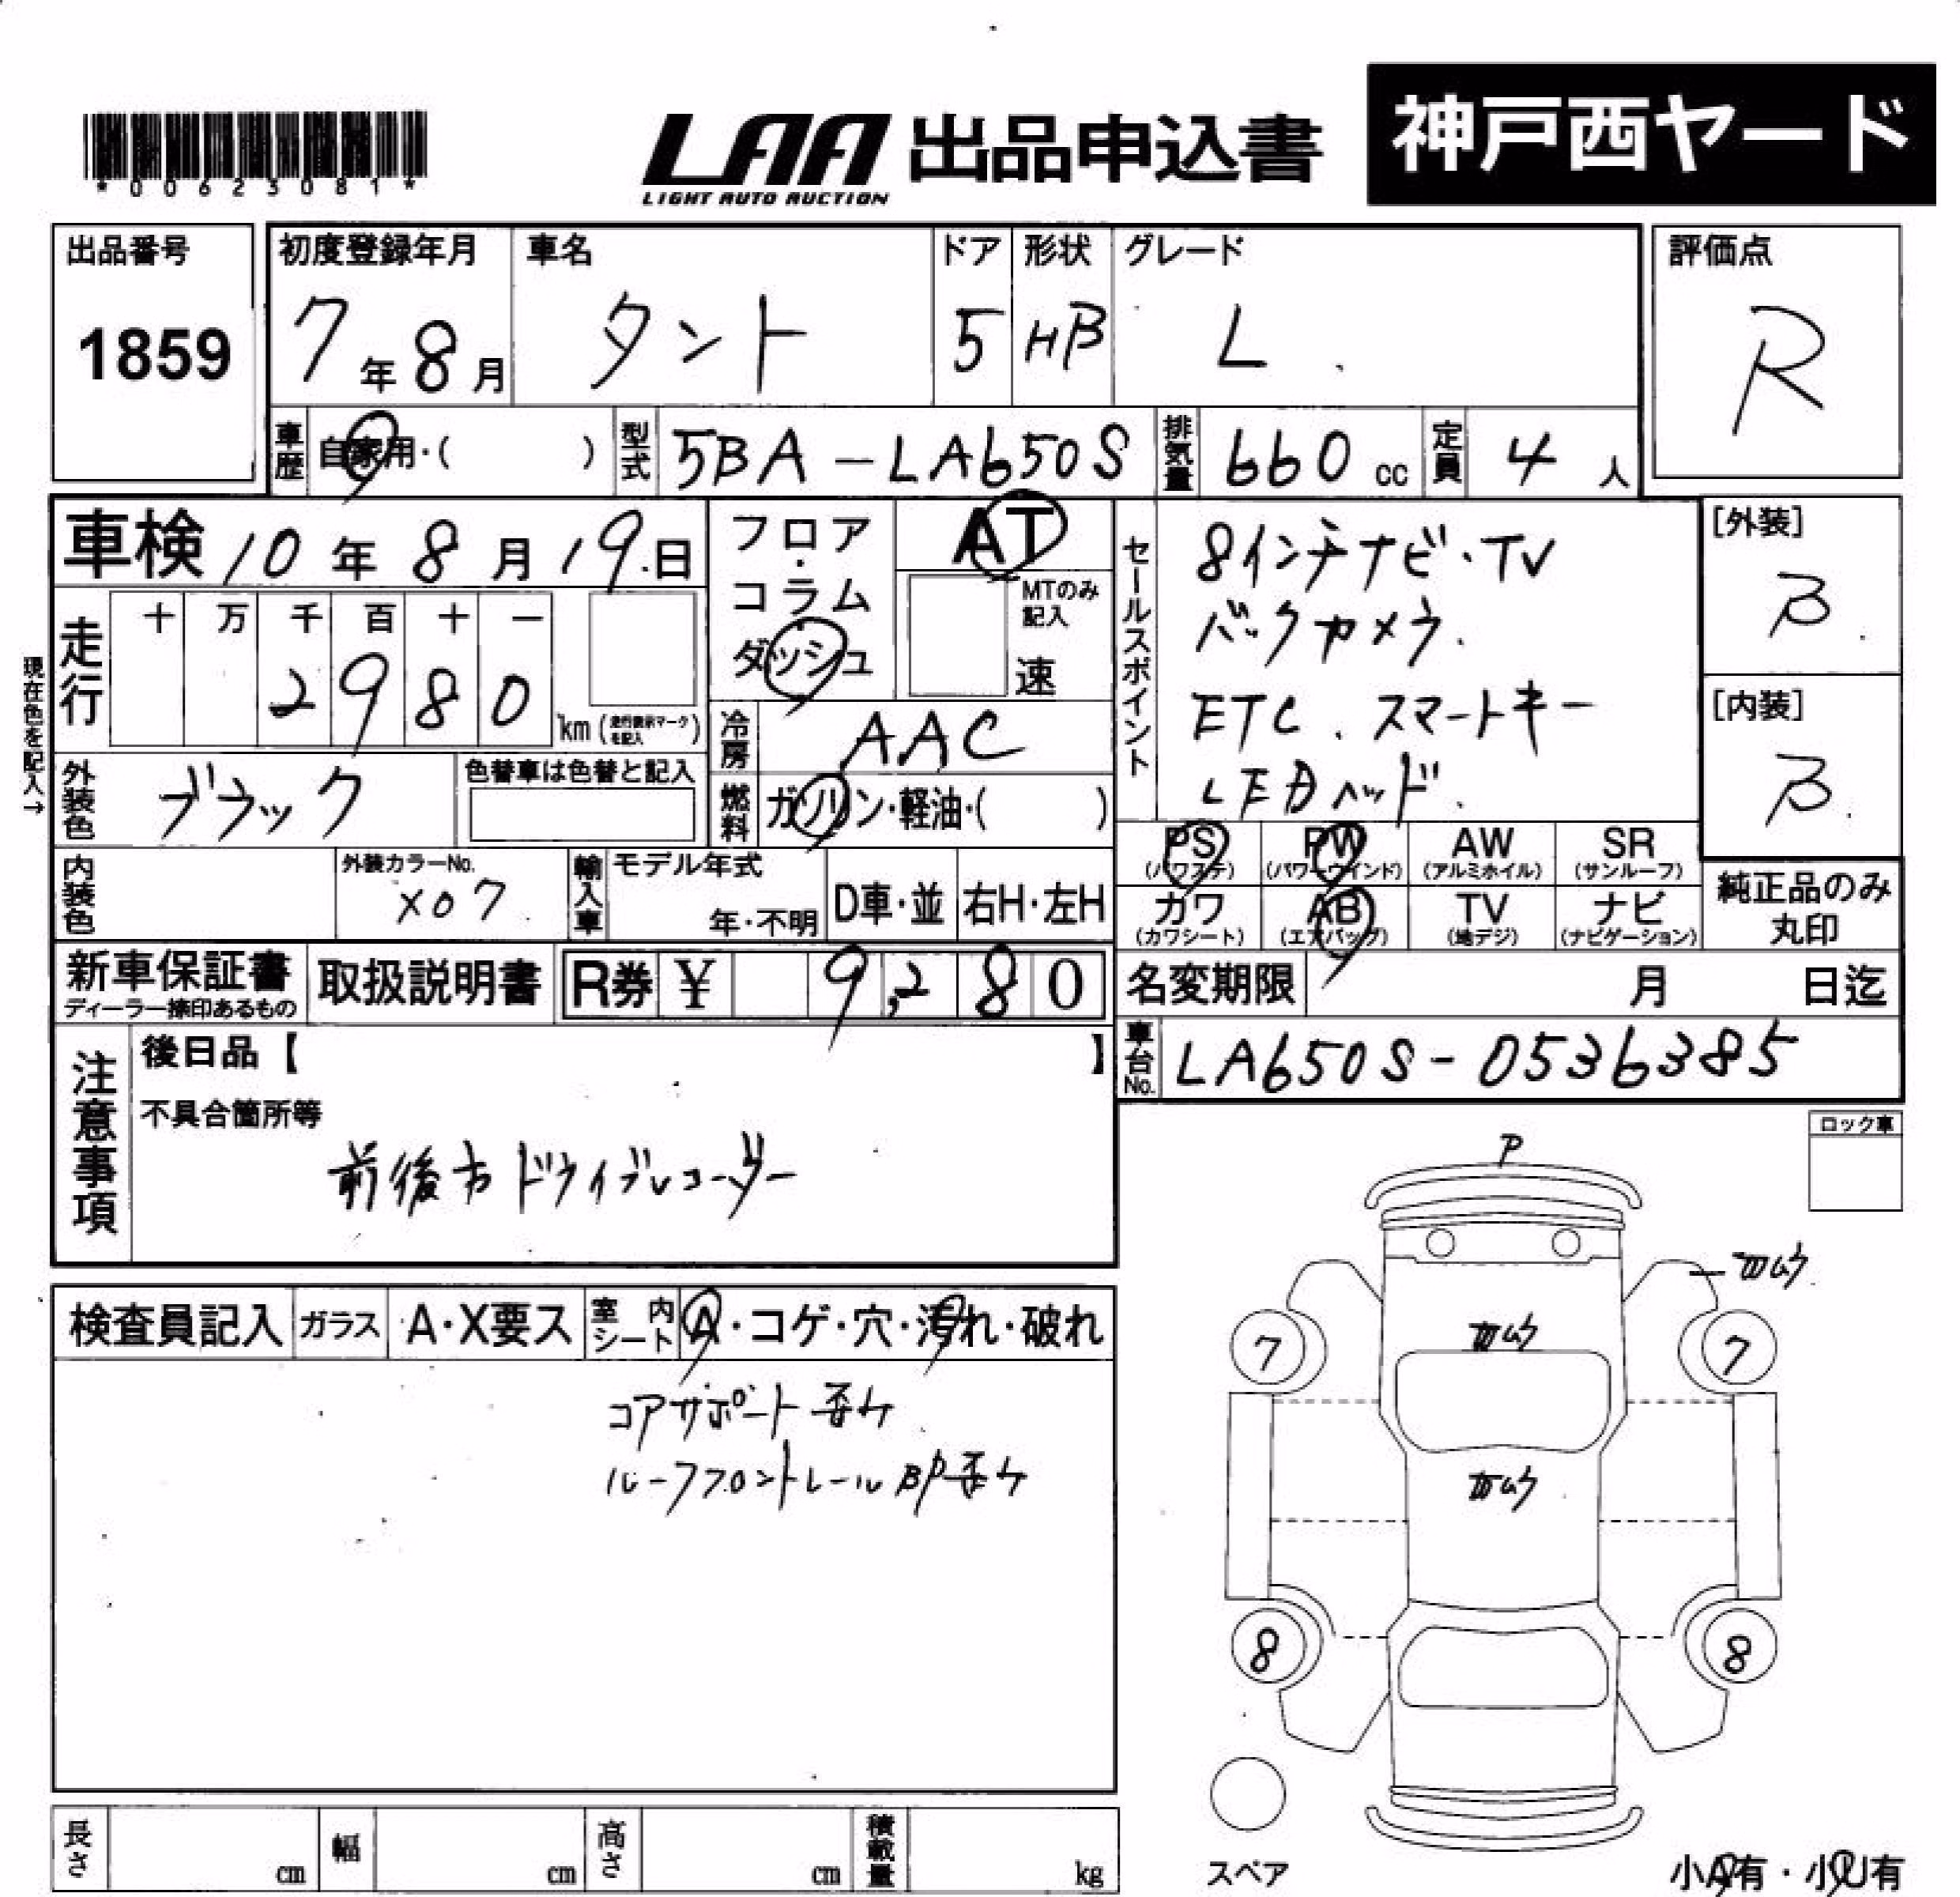 *00623081*
LAA 出品申込書
LIGHT AUTO AUCTION
神戸西ヤード
出品番号
1859
初度登録年月
7年8月
車名
タント
ドア
5
形状
HB
グレード
L
評価点
R
車歴
自家用・( )
型式
5BA-LA650S
排気量
660 cc
定員
4 人
車検 10年8月19日
フロア・コラム
ダッシュ
AT
MTのみ記入
速
走行
十 万 千 百 十 一
2980
km (走行表示マークを記入)
現在色を記入→
冷房
AAC
燃料
ガソリン・軽油・( )
外装色
ブラック
色替車は色替と記入
内装色
外装カラーNo.
X07
輸入車
モデル年式
年・不明
D車・並
右H・左H
セールスポイント
8インチナビ・TV
バックカメラ.
ETC、スマートキー
LEDヘッド.
PS
(パワステ)
PW
(パワーウインド)
AW
(アルミホイル)
SR
(サンルーフ)
カワ
(カワシート)
AB
(エアバッグ)
TV
(地デジ)
ナビ
(ナビゲーション)
[外装]
B
[内装]
B
純正品のみ
丸印
新車保証書
ディーラー捺印あるもの
取扱説明書
R券 ¥ 9,280
名変期限 月 日迄
車台No.
LA650S-0536385
注意事項
後日品【 】
不具合箇所等
前後方ドライブレコーダー
ロック車
検査員記入
ガラス
A・X要ス
室内シート
A・コゲ・穴・汚れ・破れ
コアサポート歪ケ
ルーフフロントレール部歪ケ
P
7
7
8
8
スペア
小A有・小U有
長さ
cm
幅
cm
高さ
cm
積載量
kg